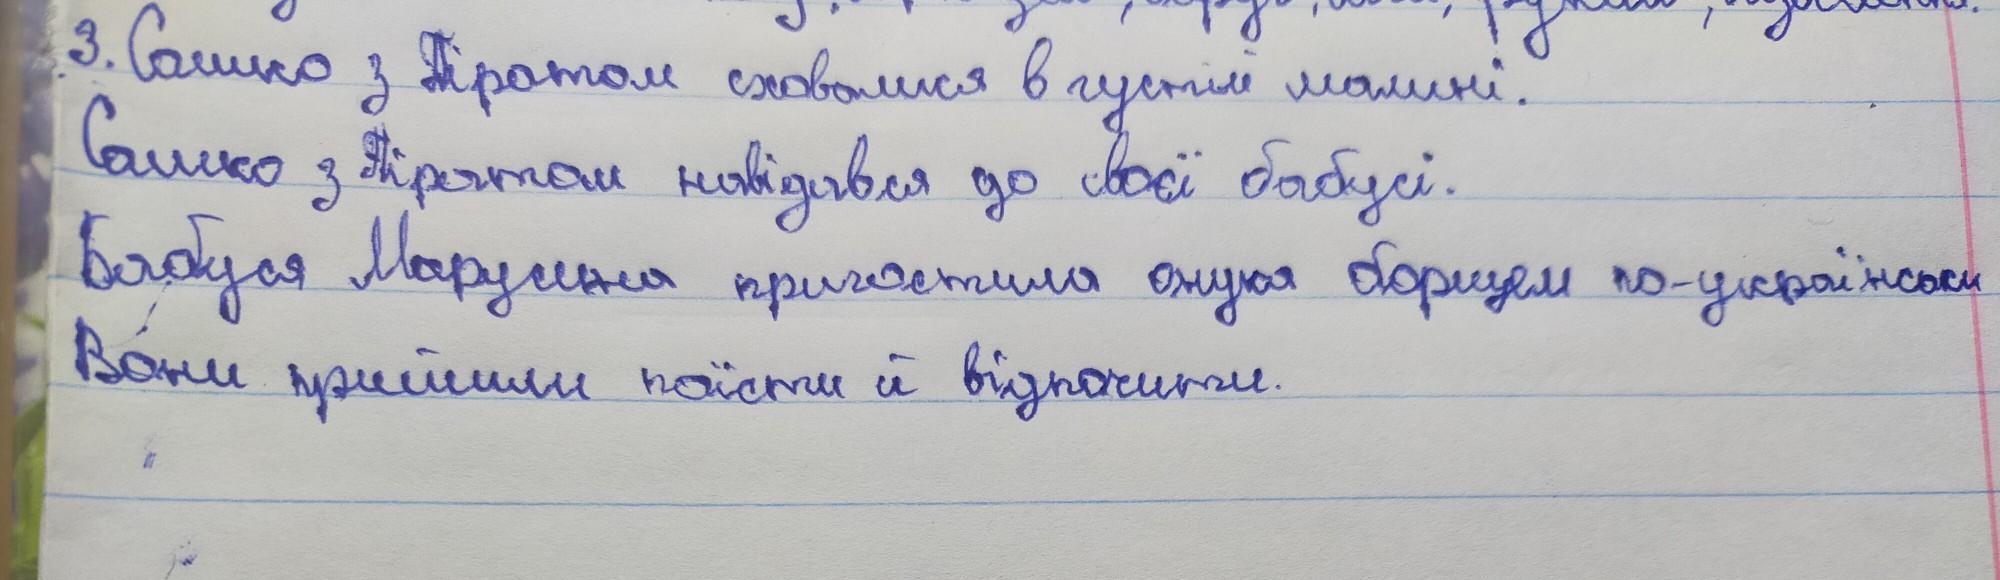 3. Сашко з Піратом сховалися в густій малині.
Сашко з Піратом навідався до своєї бабусі.
Бабуся Марусина пригостила онука борщем по-українськи
Вони прийшли поїсти й відпочити.